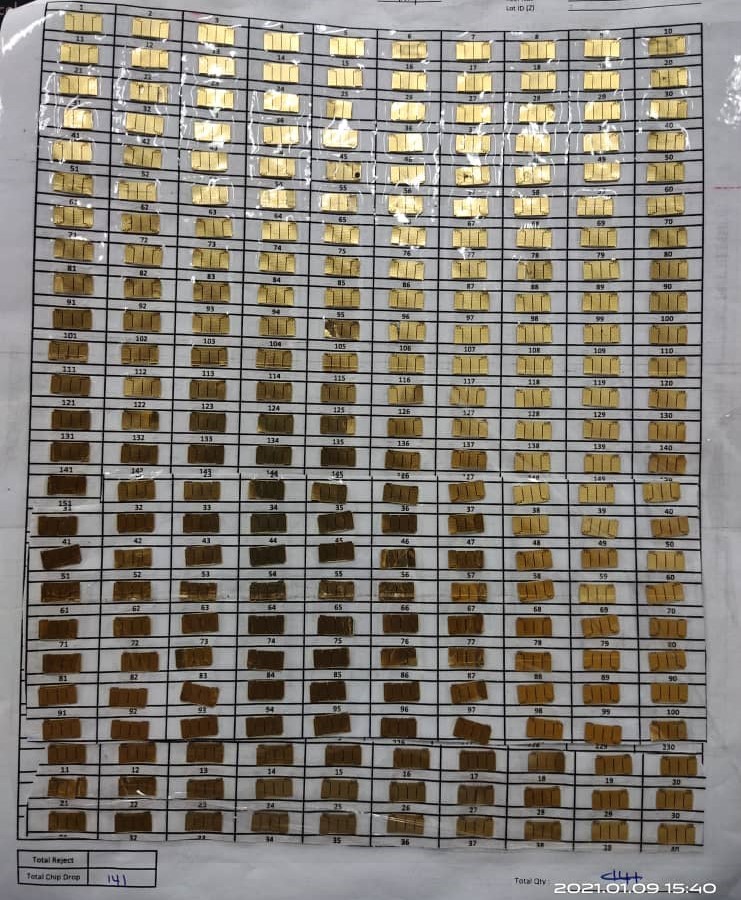 Lot ID (2)
1 2 3 4 5 6 7 8 9 10
11 12 13 14 15 16 17 18 19 20
21 22 23 24 25 26 27 28 29 30
32 34 36 38 40
41 42 45 46 49 50
51 52 55 56 58 60
61 62 63 64 65 67 69 70
71 72 73 74 75 76 77 78 79 80
81 82 83 84 85 86 87 88 89 90
91 92 93 94 95 96 97 98 99 100
101 102 103 104 105 106 107 108 109 110
111 112 113 114 115 116 117 118 119 120
121 122 123 124 125 126 127 128 129 130
131 132 133 134 135 136 137 138 139 140
141 142 143 144 145
151
31 32 33 34 35 36 37 38 39 40
41 42 43 44 45 46 47 48 49 50
51 52 53 54 55 56 57 58 59 60
61 62 63 64 65 66 67 68 69 70
71 72 73 74 75 76 77 78 79 80
81 82 83 84 85 86 87 88 89 90
91 92 93 94 95 96 97 98 99 100
229 230
11 12 13 14 15 16 17 18 19 20
21 22 23 24 25 26 27 28 29 30
32 34 35 36 37
Total Reject
Total Chip Drop 141
Total Qty :
2021.01.09 15:40